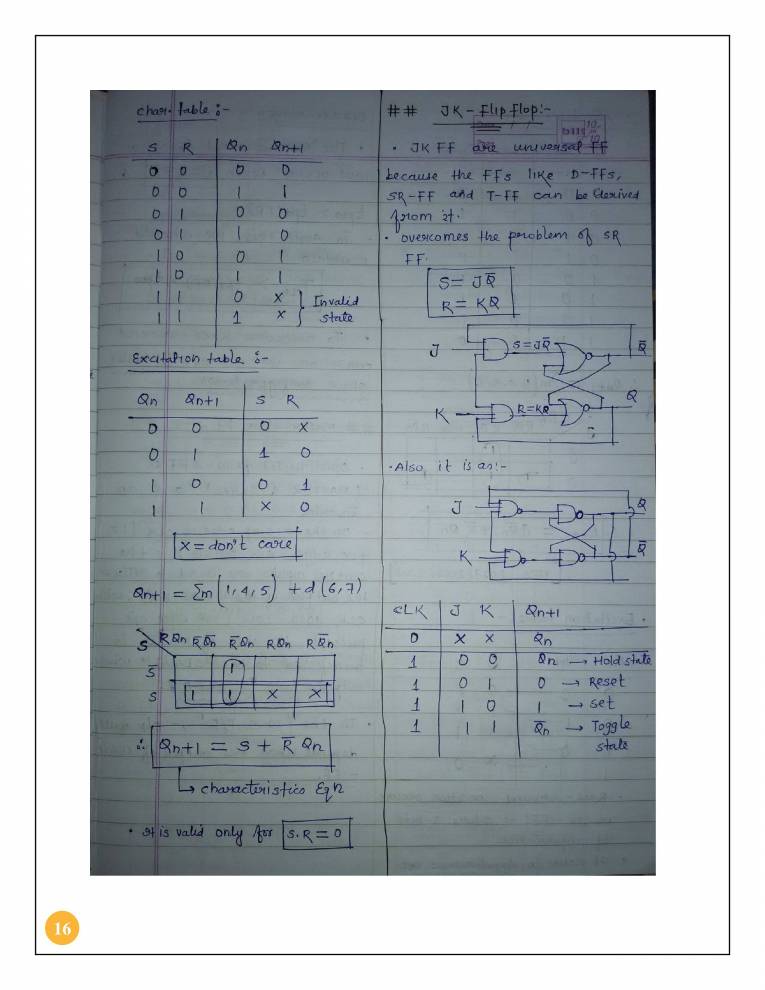 char. table :-
S R Qn Qn+1
0 0 0 0
0 0 1 1
0 1 0 0
0 1 1 0
1 0 0 1
1 0 1 1
1 1 0 x } Invalid
1 1 1 x } state
Excitation table :-
Qn Qn+1 S R
0 0 0 x
0 1 1 0
1 0 0 1
1 1 x 0
x = don't care
Qn+1 = Σm(1,4,5) + d(6,7)
S R Qn R̅ Q̅n R̅ Qn R Qn R Q̅n
S̅ 1
S 1 1 x x
∴ Qn+1 = S + R̅ Qn
↳ characteristics Eqn
• It is valid only for S.R = 0
## JK - Flip Flop:-
• JK FF are universal FF
because the FFs like D-FFs,
SR-FF and T-FF can be derived
from it.
• overcomes the problem of SR
FF.
S = JQ̅
R = KQ
J S=JQ̅ Q̅
Q
K R=KQ
• Also, it is as:-
J Q
K Q̅
CLK J K Qn+1
0 x x Qn
1 0 0 Qn → Hold state
1 0 1 0 → Reset
1 1 0 1 → set
1 1 1 Q̅n → Toggle
state
16